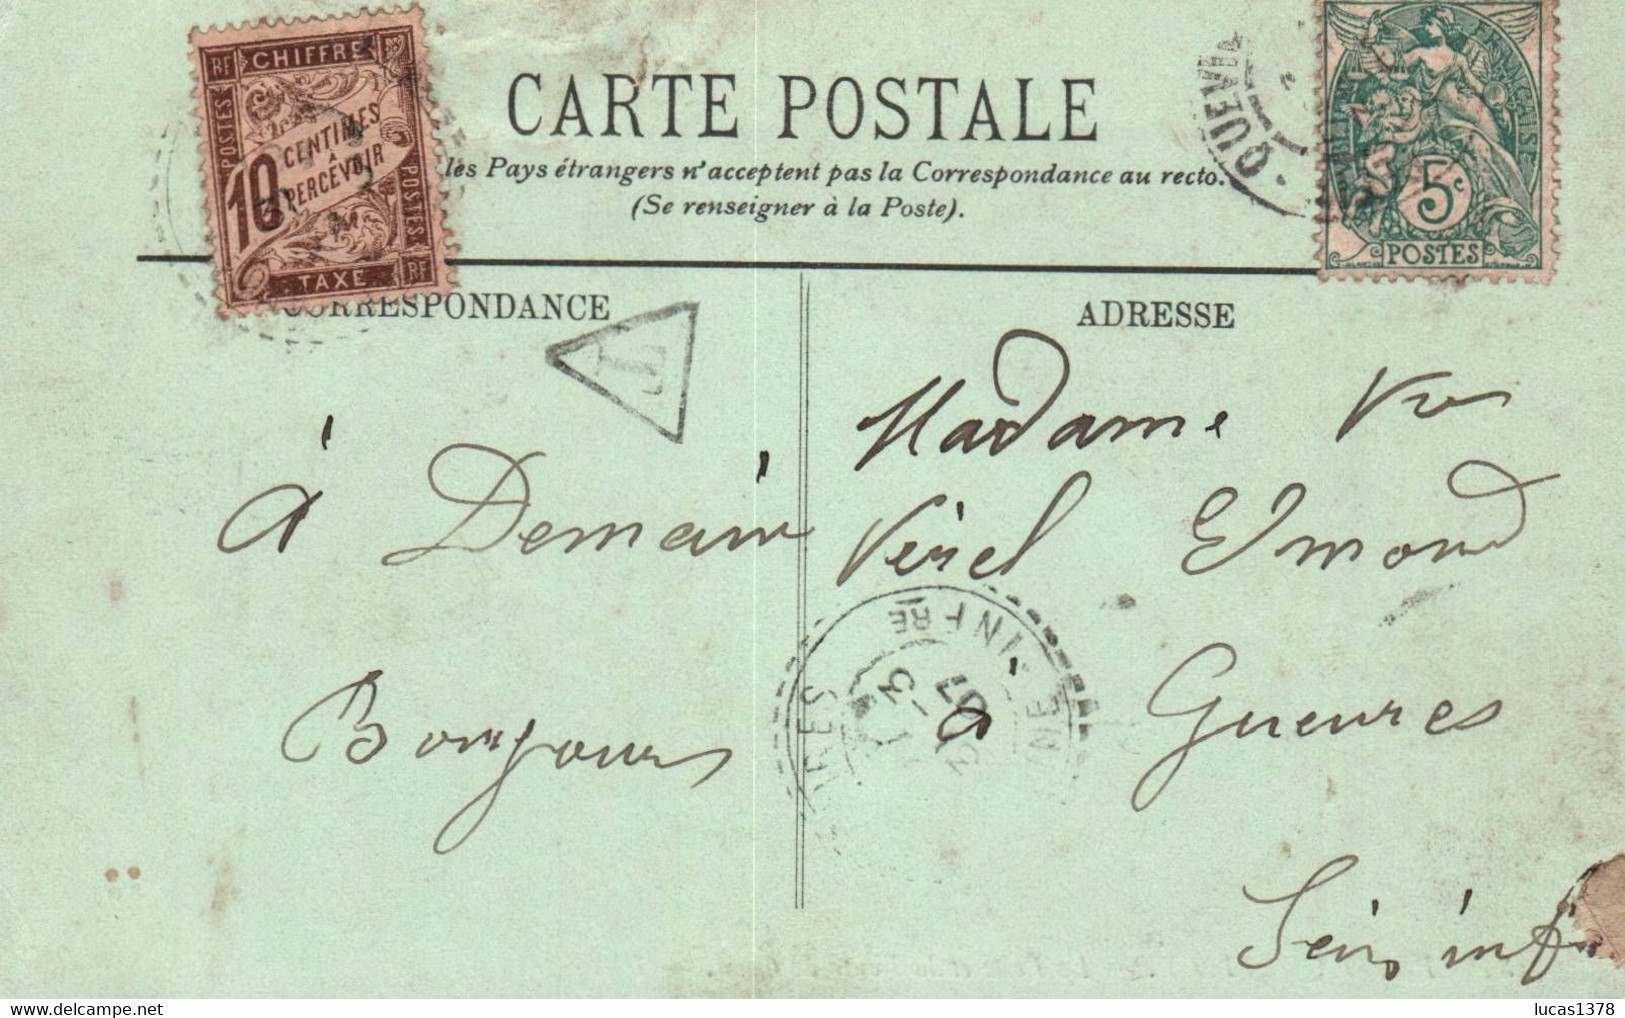 RF CHIFFRE
POSTES
10 CENTIMES
À
PERCEVOIR
POSTES
TAXE RF
CARTE POSTALE
les Pays étrangers n'acceptent pas la Correspondance au recto.
(Se renseigner à la Poste).
5c
POSTES
CORRESPONDANCE
ADRESSE
T
À Demain
Bonjours
Madame Vve
Vérel Edmond
à Gueures
Sein inf
INFRE
3
07
lucas1378